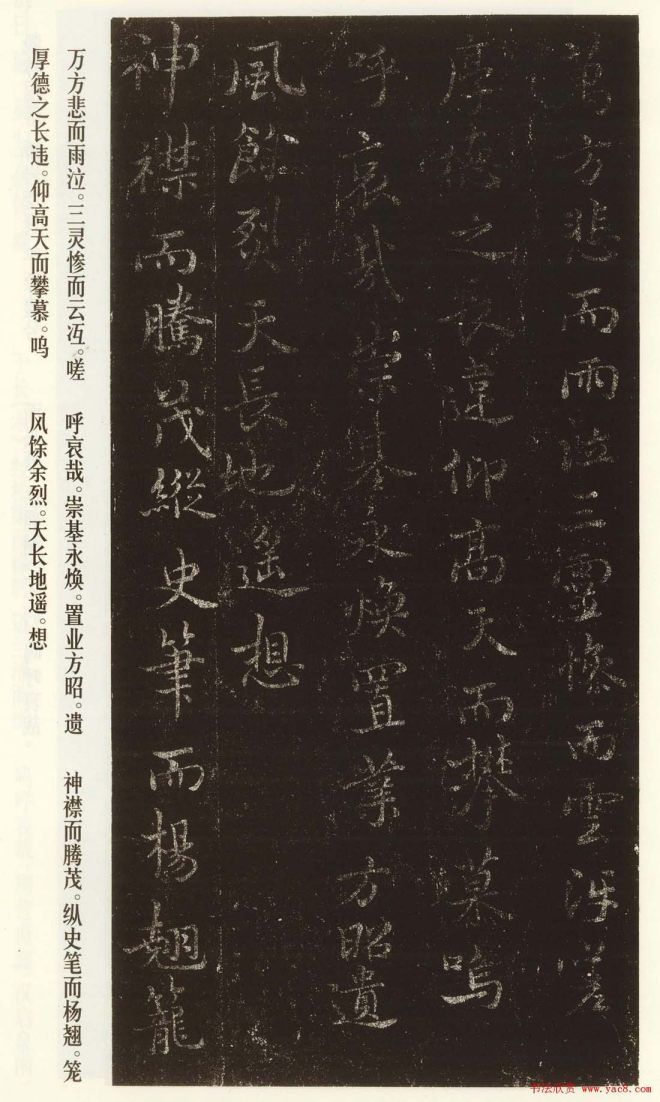 萬方悲而雨泣三靈慘而雲沍嗟
厚德之長違仰高天而攀慕嗚
呼哀哉崇基永煥置業方昭遺
風餘烈天長地遥想
神襟而騰茂縱史筆而楊翹籠
万方悲而雨泣。三灵惨而云冱。嗟
厚德之长违。仰高天而攀慕。呜
呼哀哉。崇基永焕。置业方昭。遗
风馀余烈。天长地遥。想
神襟而腾茂。纵史笔而杨翘。笼
书法欣赏 www.yac8.com